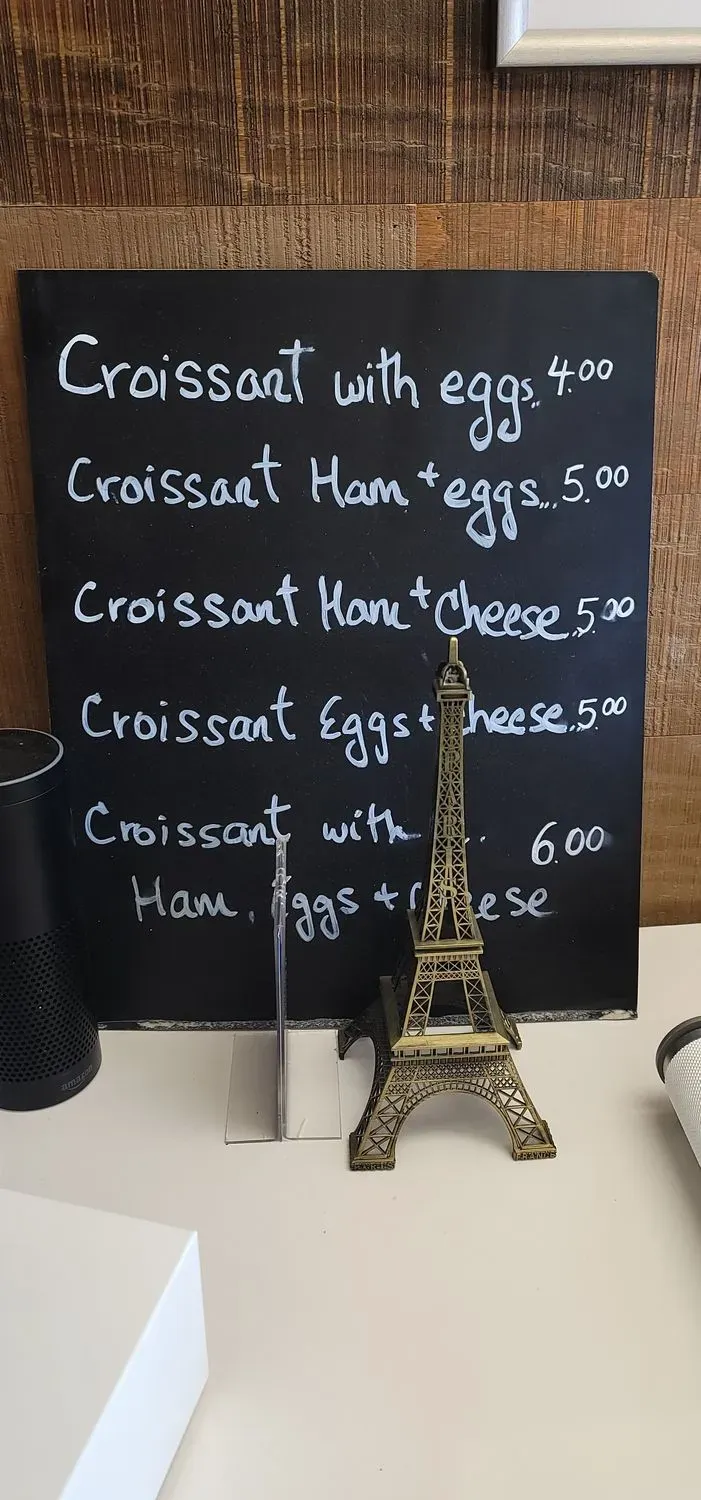 Croissant with eggs... 4.00
Croissant Ham + eggs... 5.00
Croissant Ham + Cheese.. 5.00
Croissant Eggs + Cheese.. 5.00
Croissant with ... 6.00
Ham, Eggs + Cheese
amazon
PARIS
FRANCE